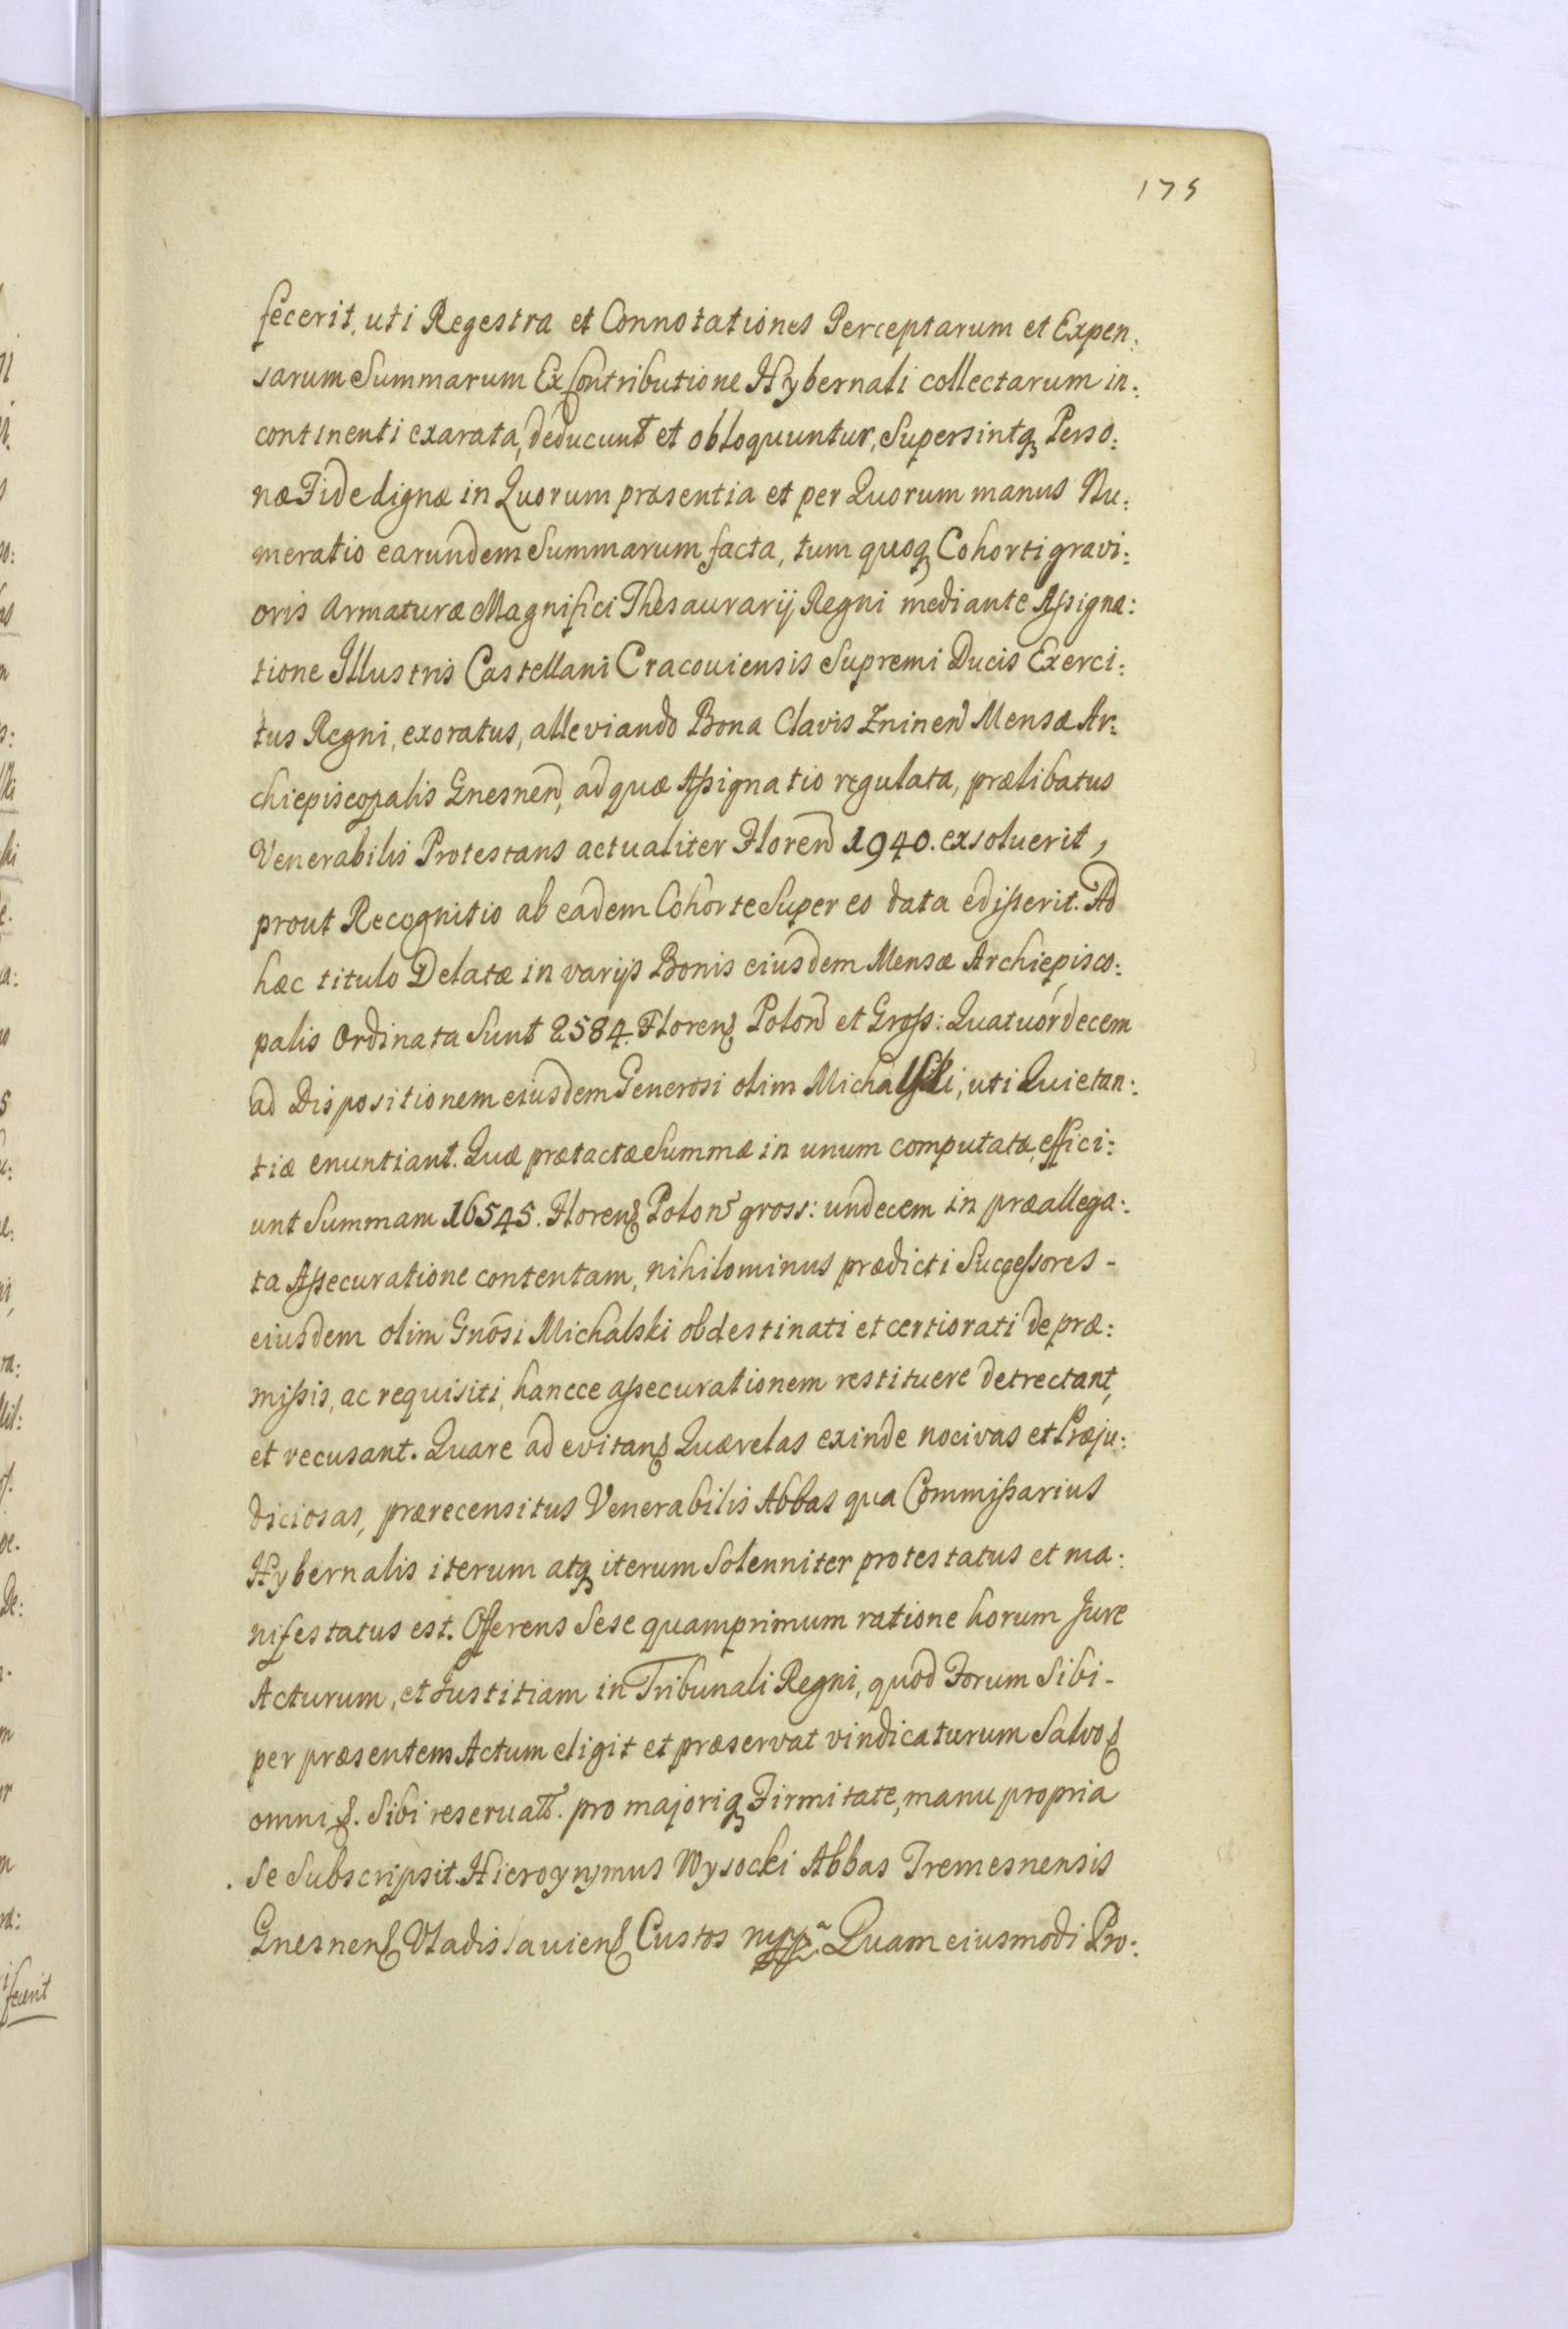 175
fecerit, uti Regestra et Connotationes Perceptarum et Expen:
sarum Summarum Ex Contributione Hybernali collectarum in:
continenti exarata, deducunt et obloquuntur, Supersintq Perso:
næ Fide dignæ in Quorum præsentia et per Quorum manus Nu:
meratio earundem Summarum facta, tum quoq Cohorti gravi:
oris Armaturæ Magnifici Thesaurarij Regni mediante Assigna:
tione Illustris Castellani Cracouiensis Supremi Ducis Exerci:
tus Regni, exoratus, alleviando Bona Clavis Zninen Mensæ Ar:
chiepiscopalis Gnesnen, ad quæ Assignatio regulata, prælibatus
Venerabilis Protestans actualiter Floren 1940. exsoluerit,
prout Recognitio ab eadem Cohorte Super eo data edisserit. Ad
hæc titulo Delatæ in varijs Bonis eiusdem Mensæ Archiepisco:
palis Ordinata Sunt 2584. Floren Polon et Gross: Quatuordecem
ad Dispositionem eiusdem Generosi olim Michalski, uti Quietan:
tiæ enuntiant. Quæ prætactæ Summæ in unum computatæ, effici:
unt Summam 16545. Floren Polon gross: undecem in præallega:
ta Assecuratione contentam, nihilominus prædicti Successores -
eiusdem olim Gnosi Michalski obdestinati et certiorati de præ:
missis, ac requisiti, hancce assecurationem restituere detrectant,
et recusant. Quare ad evitan Quærelas exinde nocivas et Præju:
diciosas, prærecensitus Venerabilis Abbas qua Commissarius
Hybernalis iterum atq iterum Solenniter protestatus et ma:
nifestatus est. Offerens Sese quamprimum ratione horum Jure
Acturum, et Justitiam in Tribunali Regni, quod Forum Sibi -
per præsentem Actum eligit et præservat vindicaturum Salvo
omni. Sibi reseruatt. pro majoriq Firmitate, manu propria
Se Subscripsit. Hieroynymus Wysocki Abbas Tremesnensis
Gnesnen Vladislauien Custos mppa. Quam eiusmodi Pro:
fecerit